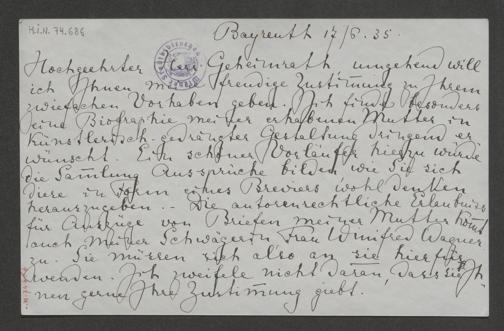 H.I.N. 74.686
Bayreuth 17/6. 35.
Hochgeehrter Herr Geheimrath umgehend will
ich Ihnen meine freudige Zustimung zu Ihrem
zwiefachen Vorhaben geben. Ich finde besonders
eine Biographie meiner erhabenen Mutter in
künstlerisch-gedrängter Gestaltung dringend er
wünscht. Ein schöner Vorläufer hiezu würde
die Samlung Aussprüche bilden, wie Sie sich
diese in Form eines Breviers wohl denken
herauszugeben. – Die autorenrechtliche Erlaubniss
für Auszüge von Briefen meiner Mutter könt
auch meiner Schwägerin Frau Winifred Wagner
zu. Sie müssen sich also an sie hierfür
wenden. Ich zweifele nicht daran, dass sie Ih-
nen gerne Ihre Zustimung giebt.